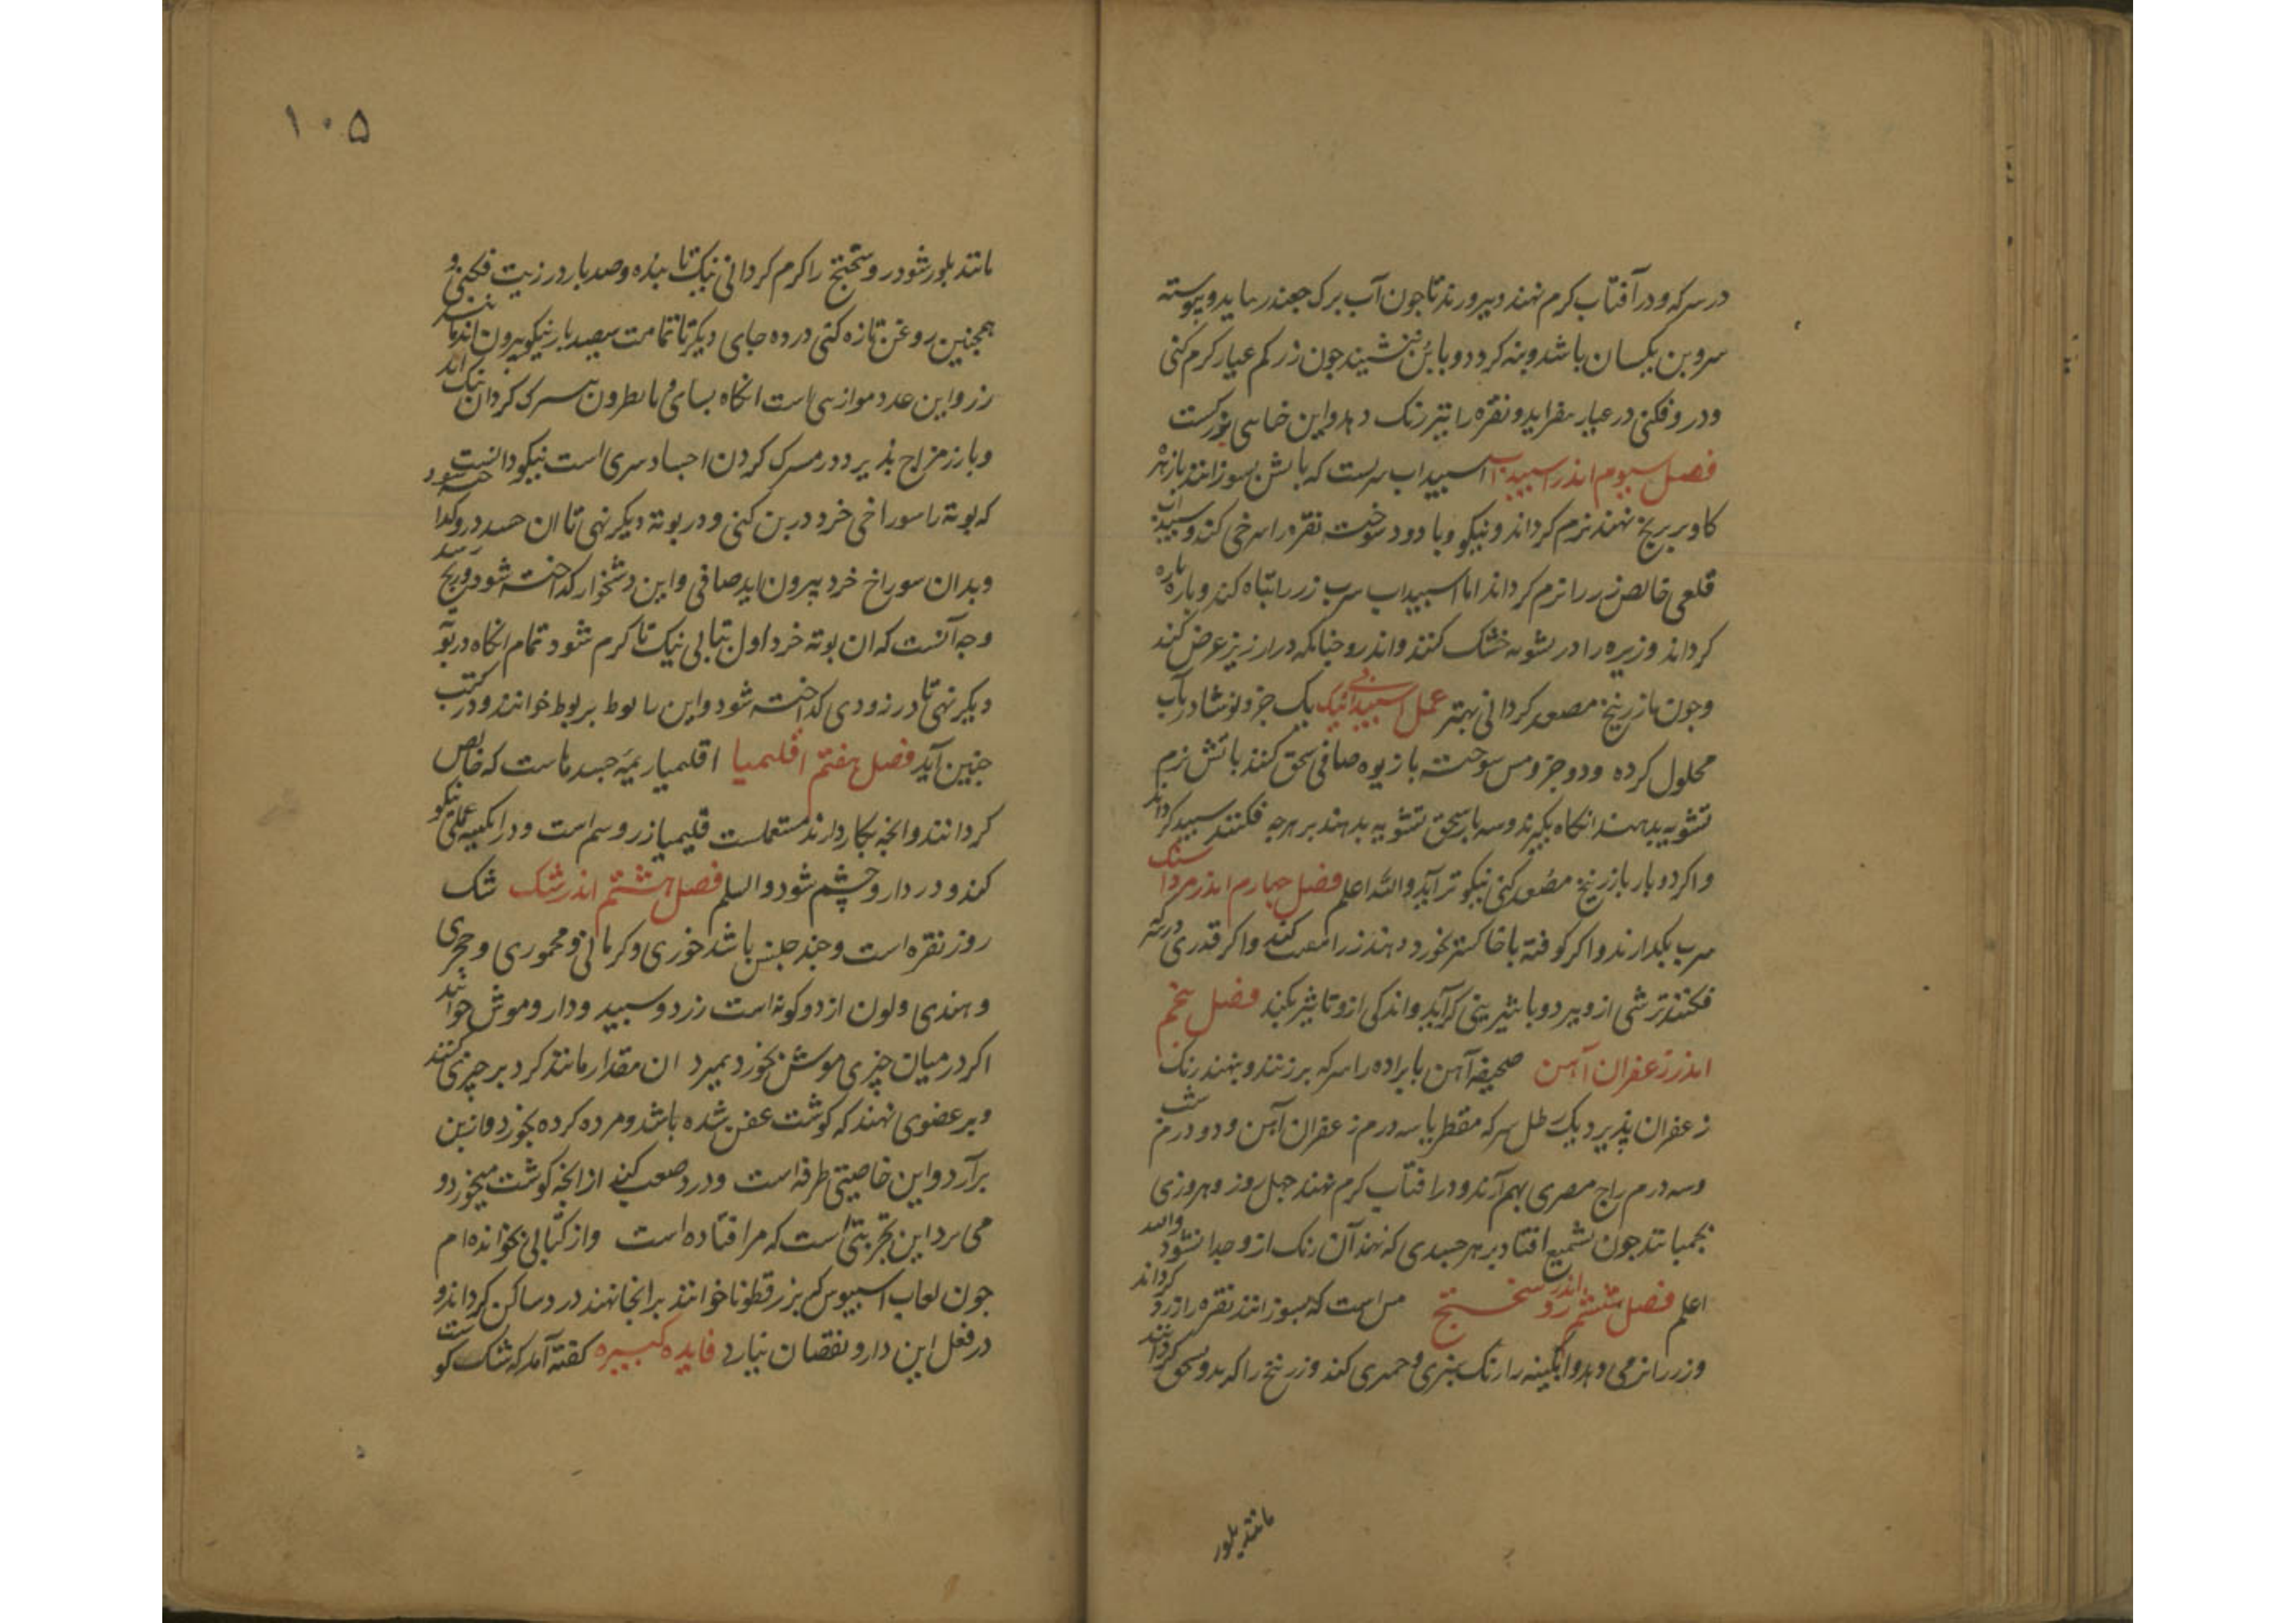 در سرکه و در آفتاب کرم نهند و بپرورند تا جون آب برک جغندر بیاید و پیوسته
سر و بن یکسان باشد و بنه کردد و با بن ننشیند جون زر کم عیار کرم کنی
و در و فکنی در عیار بیفزاید و نقره را تیز رنک دهد و این خاصی بزرکست
فصل سیوم اندر اسپیداب اسپیداب سربست که باتش بسوزانند با زهره
کاو بر برنج نهند نرم کرداند و نیکو و با دود سوخته نقره را سرخی کند و سپیداب
قلعی خالص زر را نرم کرداند اما اسپیداب سرب زر را تباه کند و پاره پاره
کرداند و زیره را در بشویه خشک کنند و اندرو جنانکه در ارزیز عرض کنند
و جون با زرنیخ مصعد کردانی بهتر عمل اسپیدابی نیک یک جزو نوشادر بآب
محلول کرده و دو جزو مس سوخته با زیوه صافی سحق کنند باتش نرم
تشویه بدهند انکاه بکیرند و سه بار سحق تشویه بدهند بر هرجه فکنند سپید کرداند
و اکر دو بار با زرنیخ مصعد کنی نیکوتر آید والله اعلم فصل جهارم اندر مرداسنک
سرب بکدازند و اکر کوفته با خاکستر بخورد دهند زر را کنند و اکر قدری در سرکه
فکنند ترشی ازو ببرد و با شیرینی کرآید و اندکی ازو تاثیر بکند فصل پنجم
اندر زعفران آهن صحیفه آهن یا براده را سرکه برزنند و بنهند رنک
زعفران پذیرد یک رطل سرکه مقطر با سه درم زعفران آهن و دو درم شب
و سه درم زاج مصری بهم آرند و در افتاب کرم نهند جهل روز و هر روزی
بجمبانند جون بشمیع افتاد بر هر جسدی که نهند آن رنک ازو جدا نشود والله
اعلم فصل ششم اندر روسختج مس است که بسوزانند نقره را زرد کرداند
و زر را نرمی دهد و آبکینه را رنک سبزی و حمری کند و زرنیخ را که بدو سحق کردانند
مانند بلور
۱۰۵
مانند بلور شود روسختج را کرم کردانی نیک تا بنده و صد بار در زیت فکنی و
همجنین روغن تازه کنی در ده جای دیکر تا تمامت سیصد بار نیکو بیرون اید مانند
زر و این عدد موازنی است انکاه بسای و با نطرون بسرک کردان نیک اند
و با زر مزاج پذیرد و در مسرک کردن اجساد سری است نیکو دانست
که بوته را سوراخی خرد در بن کنی و در بوته دیکر نهی تا ان جسد درو کداخته شود
و بدان سوراخ خرد بیرون اید صافی و این دشخوار کداخته شود و رنج رسد
وجه آنست که ان بوته خرد اول بتابی نیک تا کرم شود تمام انکاه در بوته
دیکر نهی تا در زودی کداخته شود و این را بوط بربوط خوانند و در کتب
جنین آید فصل هفتم اقلیمیا اقلیمیا ریمه جسدهاست که خالص
کردانند و انجه بکار دارند مستعملست قلیمیا زر و سم است و در ابکینه عملی نیکو
کند و در داروی چشم شود والسلم فصل هشتم اندر شک شک
روز نقره است و جند جنس باشد خوری و کرمانی و محموری و حجری
و هندی و لون از دو کونه است زرد و سپید و دارو موش خوانند
اکر در میان چیزی موش بخورد بمیرد ان مقدار مانند کرد بر چیزی کنند
و بر عضوی نهند که کوشت عفن شده باشد و مرده کرده بخورد و از بن
برآرد و این خاصیتی طرفه است و درد صعب کند ازانجه کوشت میخورد و
می برد این تجربتی است که مرا افتاده است و از کتابی نخوانده ام
جون لعاب اسپیوس که بزرقطونا خوانند برانجا نهند درد ساکن کرداند و
در فعل این دارو نقصان نیارد فایده کبیره کفته آمد که شک کوست